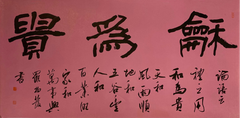 龢為貴
論語云
禮之用
和為貴
天和
風雨順
地和
五谷豐
人和
百業興
家和
萬事興